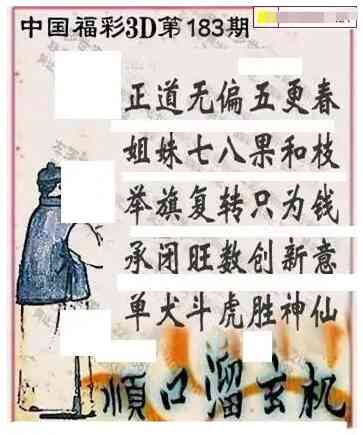 中国福彩3D第183期
正道无偏五更春
姐妹七八果和枝
举旗复转只为钱
承闭旺数创新意
单犬斗虎胜神仙
順口溜玄机